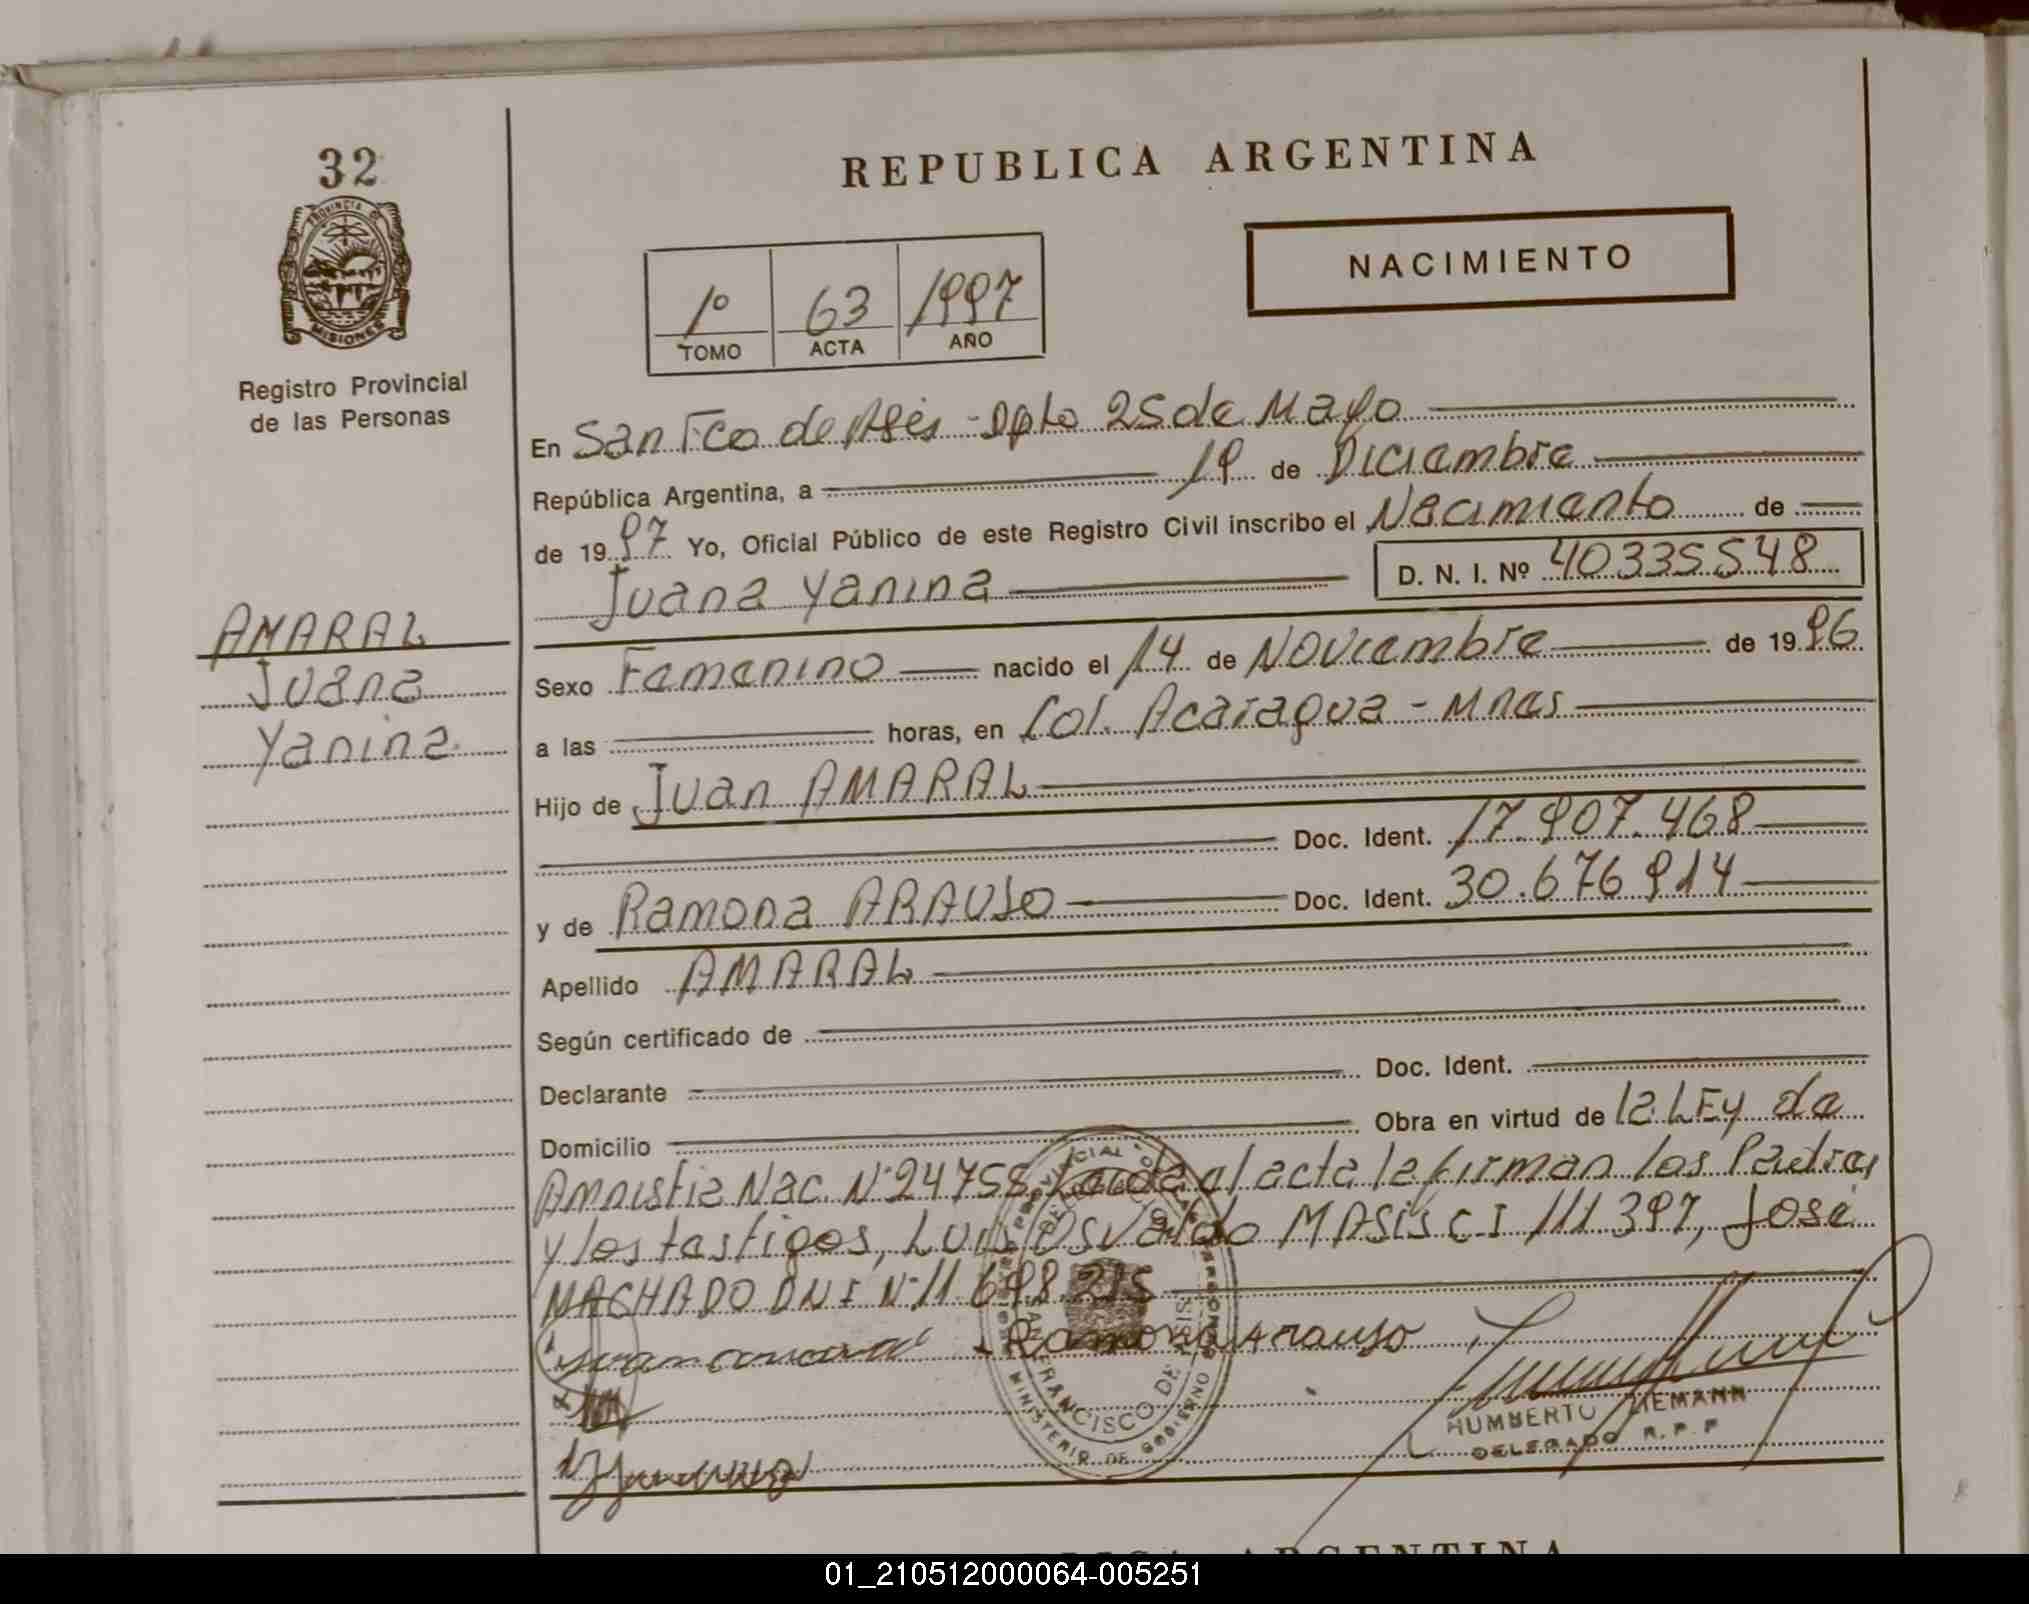 32
REPUBLICA ARGENTINA
PROVINCIA DE
MISIONES
NACIMIENTO
1º 63 1997
TOMO ACTA AÑO
Registro Provincial
de las Personas
En San Fco de Asis - Dpto 25 de Mayo
República Argentina, a 19 de Diciembre
de 1997 Yo, Oficial Público de este Registro Civil inscribo el Nacimiento de
Juana Yanina D. N. I. Nº 40335548
AMARAL
Juana
Yanina
Sexo Femenino nacido el 14 de Noviembre de 1996
a las horas, en Col. Acaragua - Mnes
Hijo de Juan AMARAL
Doc. Ident. 17.907.468
y de Ramona ARAUJO Doc. Ident. 30.676914
Apellido AMARAL
Según certificado de
Declarante Doc. Ident.
Domicilio Obra en virtud de la LEy de
Amnistia Nac. Nº 24755 Leida el acta la firman los Padres
y los testigos, Luis Osvaldo MASIS C I 111 397, José
MACHADO DNI Nº 11.698.215
Ramona Araujo
HUMBERTO
DELEGADO R. P. P
FRANCISCO DE ASIS
MINISTERIO DE GOBIERNO
REPUBLICA ARGENTINA
01_210512000064-005251